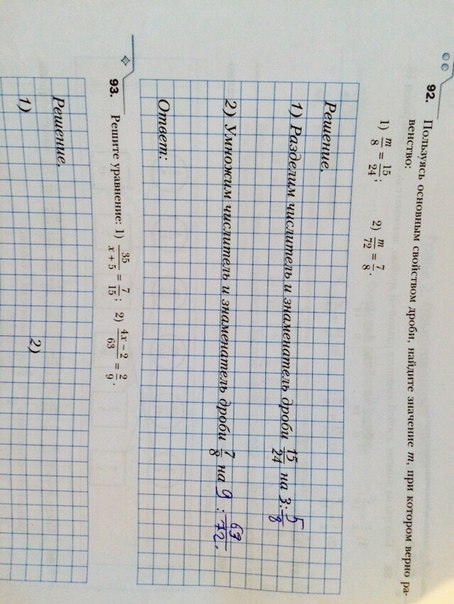 92. Пользуясь основным свойством дроби, найдите значение m, при котором верно ра-
венство:
1) m/8 = 15/24; 2) m/72 = 7/8.
Решение.
1) Разделим числитель и знаменатель дроби 15/24 на 3: 5/8
2) Умножим числитель и знаменатель дроби 7/8 на 9: 63/72.
Ответ:
93. Решите уравнение: 1) 35/(x + 5) = 7/15; 2) (4x − 2)/63 = 2/9.
Решение.
1) 2)